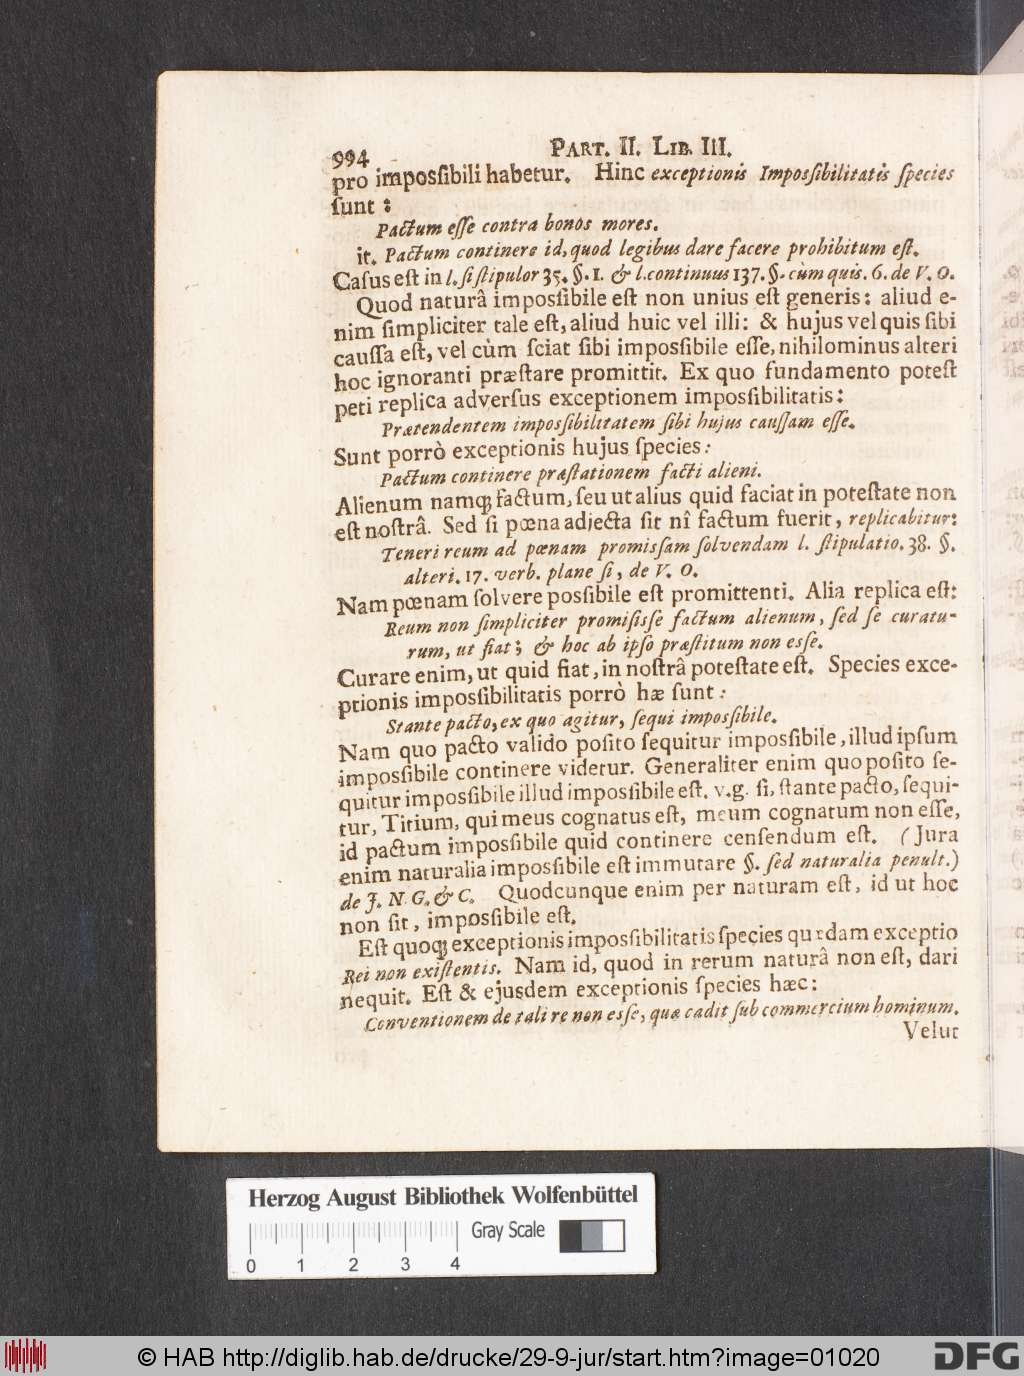 994 PART. II. LIB. III.
pro impossibili habetur. Hinc exceptionis Impossibilitatis species
sunt:
Pactum esse contra bonos mores.
it. Pactum continere id, quod legibus dare facere prohibitum est.
Casus est in l. si stipulor 35. §. 1. & l. continuus 137. §. cùm quis. 6. de V. O.
Quod naturâ impossibile est non unius est generis: aliud e-
nim simpliciter tale est, aliud huic vel illi: & hujus vel quis sibi
caussa est, vel cùm sciat sibi impossibile esse, nihilominus alteri
hoc ignoranti præstare promittit. Ex quo fundamento potest
peti replica adversus exceptionem impossibilitatis:
Prætendentem impossibilitatem sibi hujus caussam esse.
Sunt porrò exceptionis hujus species:
Pactum continere præstationem facti alieni.
Alienum namq; factum, seu ut alius quid faciat in potestate non
est nostrâ. Sed si pœna adjecta sit nî factum fuerit, replicabitur:
Teneri reum ad pœnam promissam solvendam l. stipulatio. 38. §.
alteri. 17. verb. plane si, de V. O.
Nam pœnam solvere possibile est promittenti. Alia replica est:
Reum non simpliciter promisisse factum alienum, sed se curatu-
rum, ut fiat; & hoc ab ipso præstitum non esse.
Curare enim, ut quid fiat, in nostrâ potestate est. Species exce-
ptionis impossibilitatis porrò hæ sunt:
Stante pacto, ex quo agitur, sequi impossibile.
Nam quo pacto valido posito sequitur impossibile, illud ipsum
impossibile continere videtur. Generaliter enim quo posito se-
quitur impossibile illud impossibile est. v.g. si, stante pacto, sequi-
tur, Titium, qui meus cognatus est, meum cognatum non esse,
id pactum impossibile quid continere censendum est. (Jura
enim naturalia impossibile est immutare §. sed naturalia penult.)
de J. N. G. & C. Quodcunque enim per naturam est, id ut hoc
non sit, impossibile est.
Est quoq; exceptionis impossibilitatis species quædam exceptio
Rei non existentis. Nam id, quod in rerum naturâ non est, dari
nequit. Est & ejusdem exceptionis species hæc:
Conventionem de tali re non esse, quæ cadit sub commercium hominum.
Velut
Herzog August Bibliothek Wolfenbüttel
Gray Scale
0 1 2 3 4
© HAB http://diglib.hab.de/drucke/29-9-jur/start.htm?image=01020
DFG